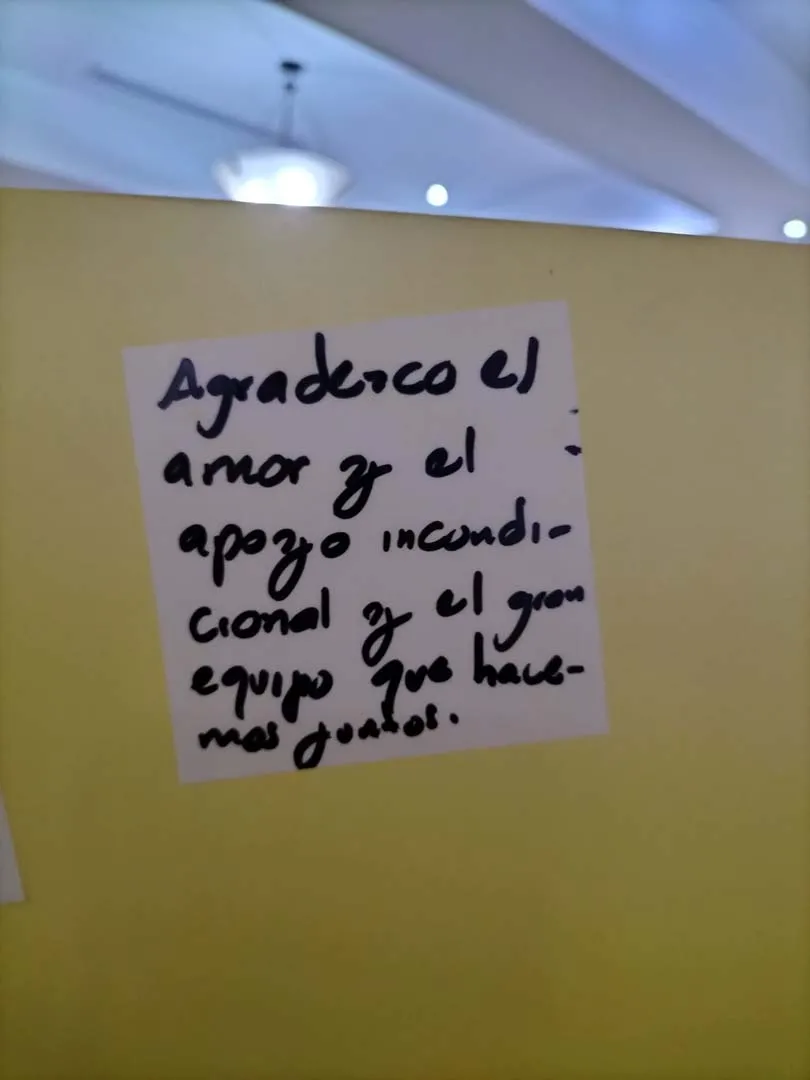 Agradezco el
amor y el
apoyo incondi-
cional y el gran
equipo que hace-
mos juntos.